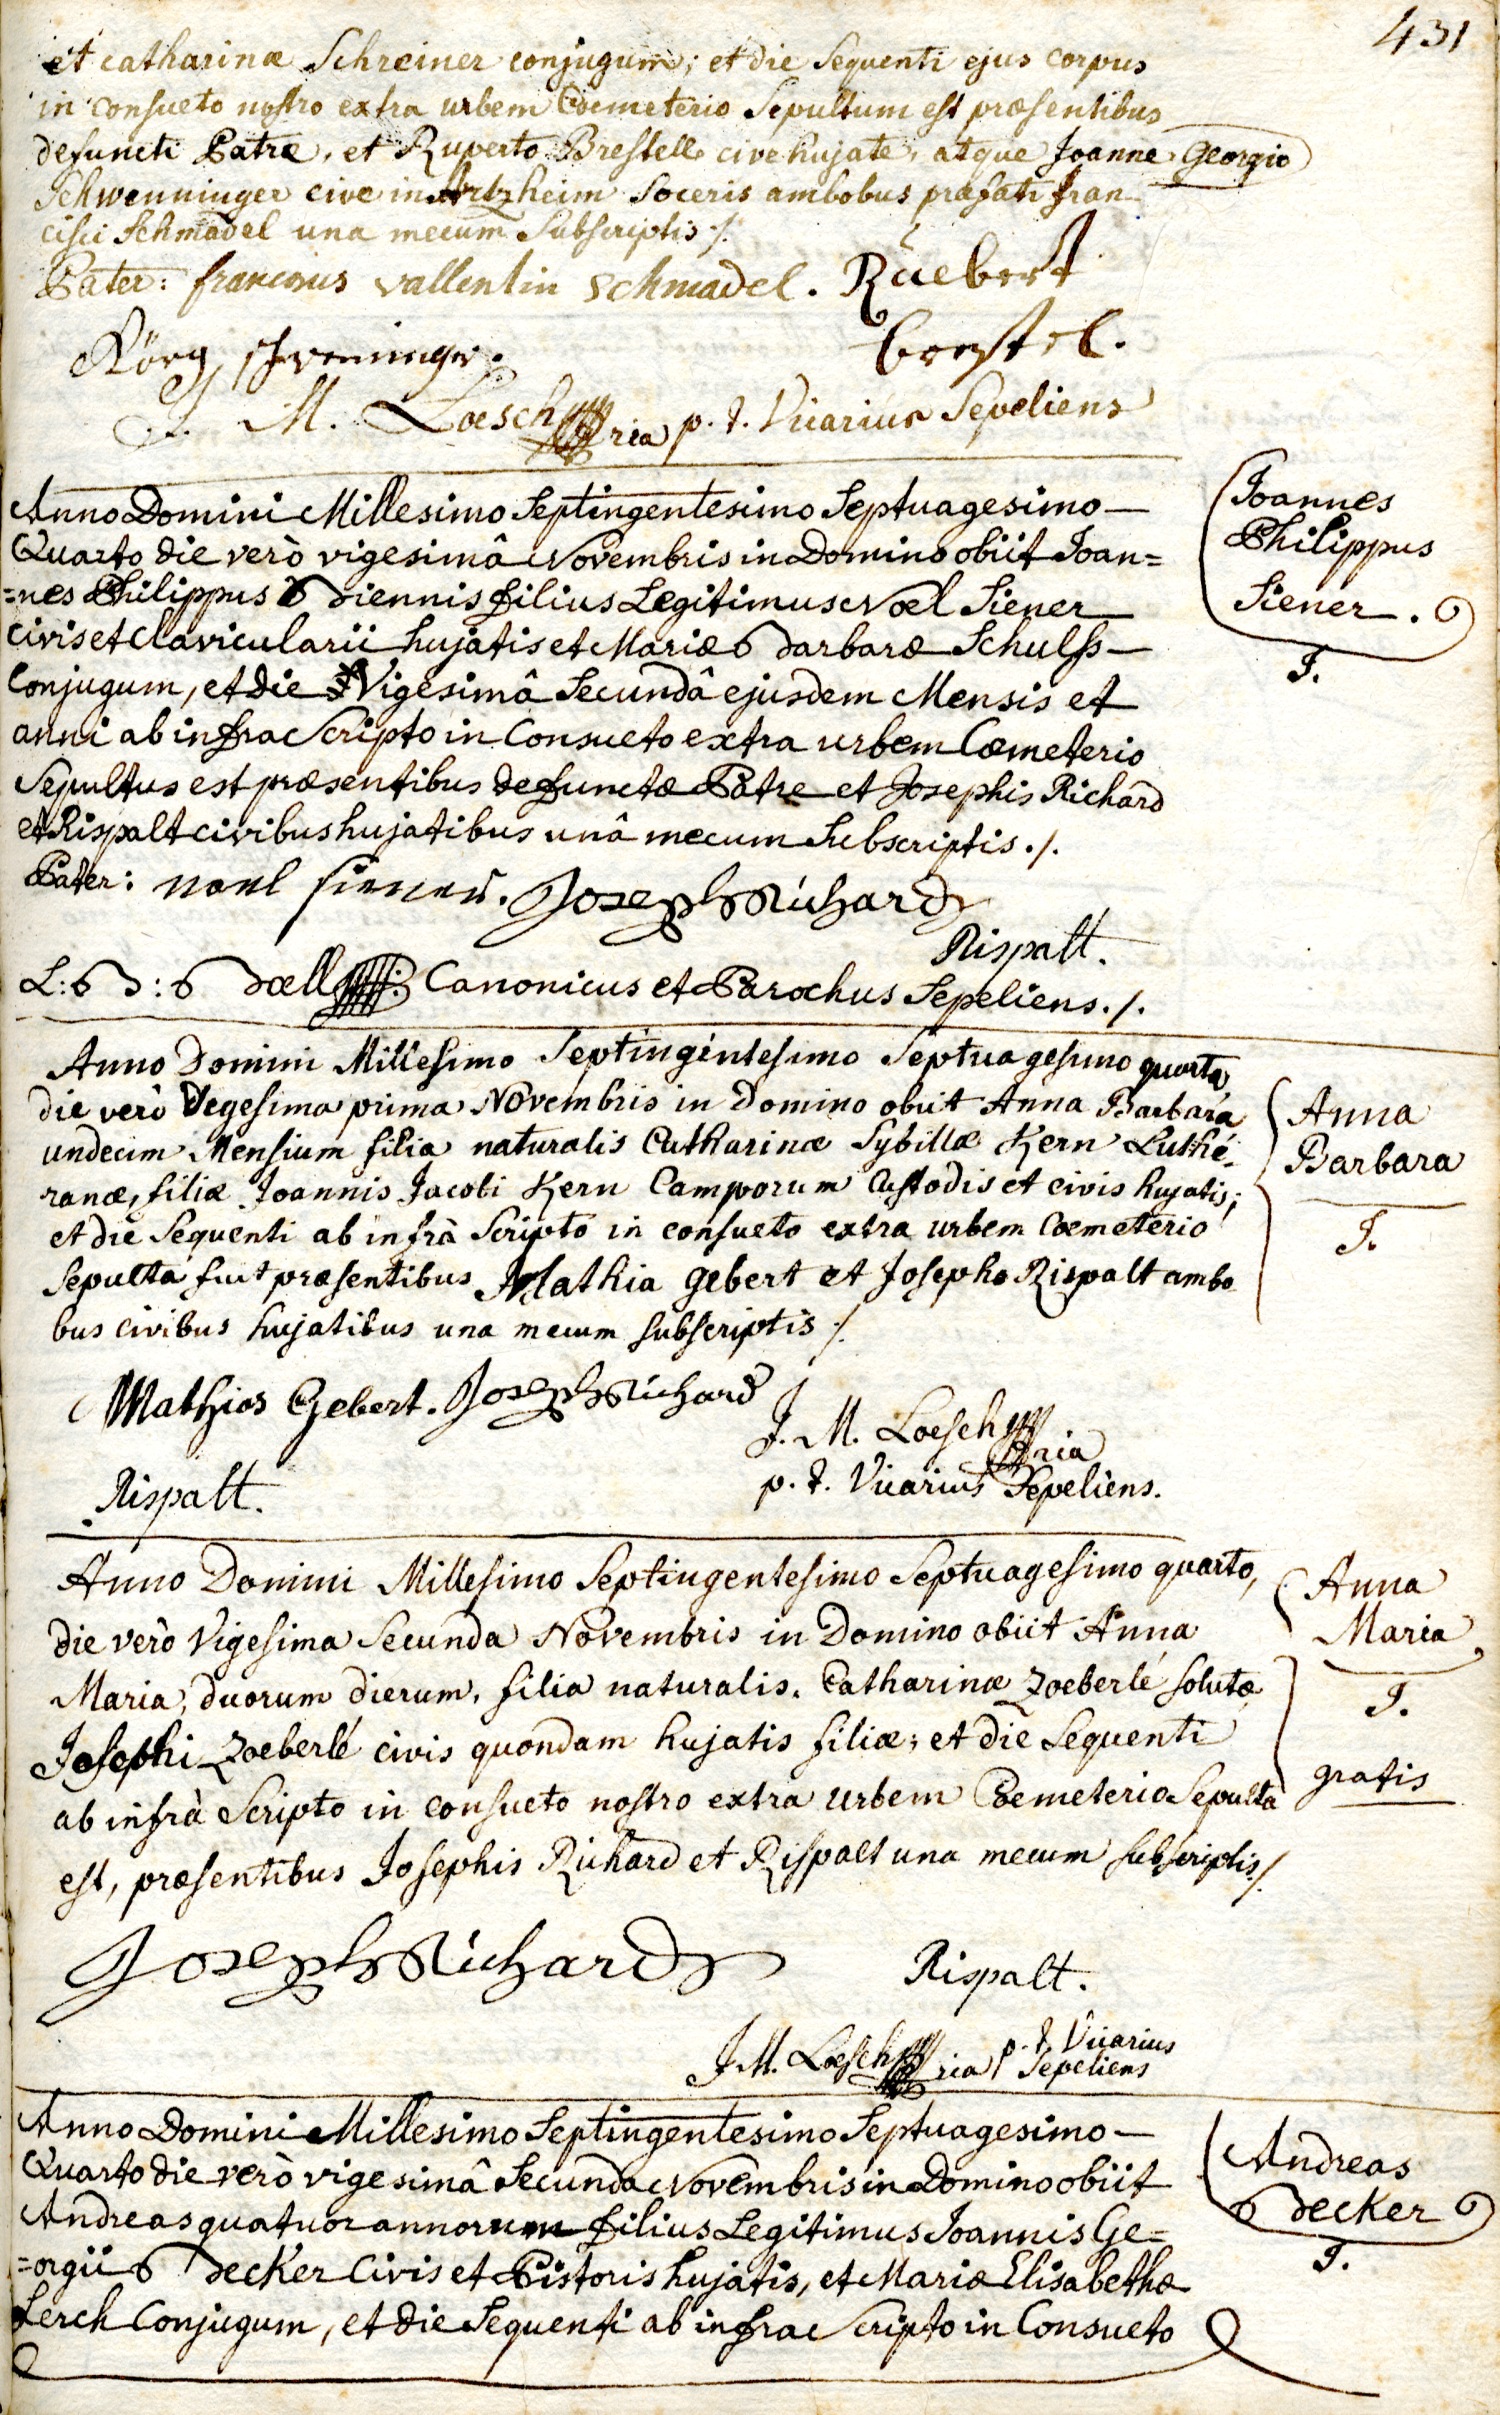 431
et catharinæ Schreiner conjugum; et die Sequenti ejus corpus
in consueto nostro extra urbem Coemeterio Sepultum est præsentibus
defuncti Patre, et Ruperto Brestelle cive hujate, atque Joanne Georgio
Schwenninger cive in Artzheim Soceris ambobus præfati fran-
cisci Schmadel una mecum Subscriptis ./.
Pater: franciscus vallentin schmadel. Ruebert
brestel.
Körg schweninger.
J. M. Loesch ria p. t. Vicarius Sepeliens
Anno Domini Millesimo Septingentesimo Septuagesimo
Quarto die verò vigesimâ Novembris in Domino obiit Joan=
=nes Philippus Biennis filius Legitimus Noel Siener
civis et clavicularii hujatis et Mariæ Barbaræ Schulss
Conjugum, et die Vigesimâ Secundâ ejusdem Mensis et
anni ab infra Scripto in Consueto extra urbem Coemeterio
Sepultus est præsentibus defunctæ Patre et Josephis Richard
et Rispalt civibus hujatibus unâ mecum Subscriptis ./.
Pater: noel siener. Joseph Richard
Rispalt.
L: B: Boell Canonicus et Parochus Sepeliens ./.
Joannes
Philippus
Siener.
J.
Anno Domini Millesimo Septingentesimo Septuagesimo quarto
die verò Vegesima prima Novembris in Domino obiit Anna Barbara
undecim Mensium filia naturalis Catharinæ Sybillæ Kern Luthé-
ranæ, filiæ Joannis Jacobi Kern Camporum Custodis et civis hujatis;
et die Sequenti ab infrà Scripto in consueto extra urbem Coemeterio
Sepulta fuit præsentibus Mathia Gebert et Josepho Rispalt ambo
bus civibus hujatibus una mecum subscriptis ./.
Mathias Gebert. Joseph Richard
J. M. Loesch ria
p. t. Vicarius Sepeliens.
Rispalt.
Anna
Barbara
J.
Anno Domini Millesimo Septingentesimo Septuagesimo quarto,
die verò Vigesima Secunda Novembris in Domino obiit Anna
Maria, duorum dierum, filia naturalis, Catharinæ Zoeberlé solutæ
Josephi Zoeberlé civis quondam hujatis filiæ; et die Sequenti
ab infrà Scripto in consueto nostro extra urbem Coemeterio Sepulta
est, præsentibus Josephis Richard et Rispalt una mecum subscriptis ./.
Joseph Richard
Rispalt.
J. M. Loesch ria p. t. Vicarius
Sepeliens
Anna
Maria
J.
gratis
Anno Domini Millesimo Septingentesimo Septuagesimo
Quarto die verò vigesimâ Secunda Novembris in Domino obiit
Andreas quatuor annorum filius Legitimus Joannis Ge=
=orgii Becker Civis et Pistoris hujatis, et Mariæ Elisabethæ
Lerch Conjugum, et die Sequenti ab infra Scripto in Consueto
Andreas
Becker
J.